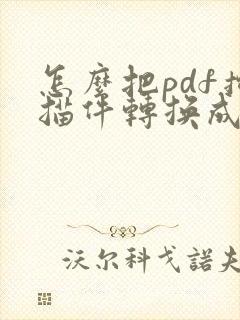 怎麼把pdf掃
描件轉換成
沃尔科戈諾夫